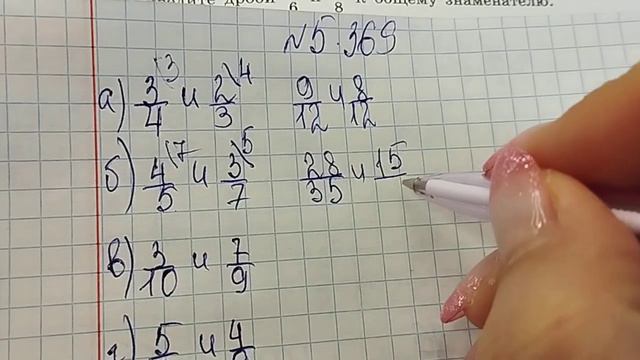 дроби 6 и 8 к общему знаменателю.
№5.369
а) 3/4 \3 и 2/3 \4 9/12 и 8/12
б) 4/5 \7 и 3/7 \5 28/35 и 15
в) 3/10 и 7/9
5 и 4